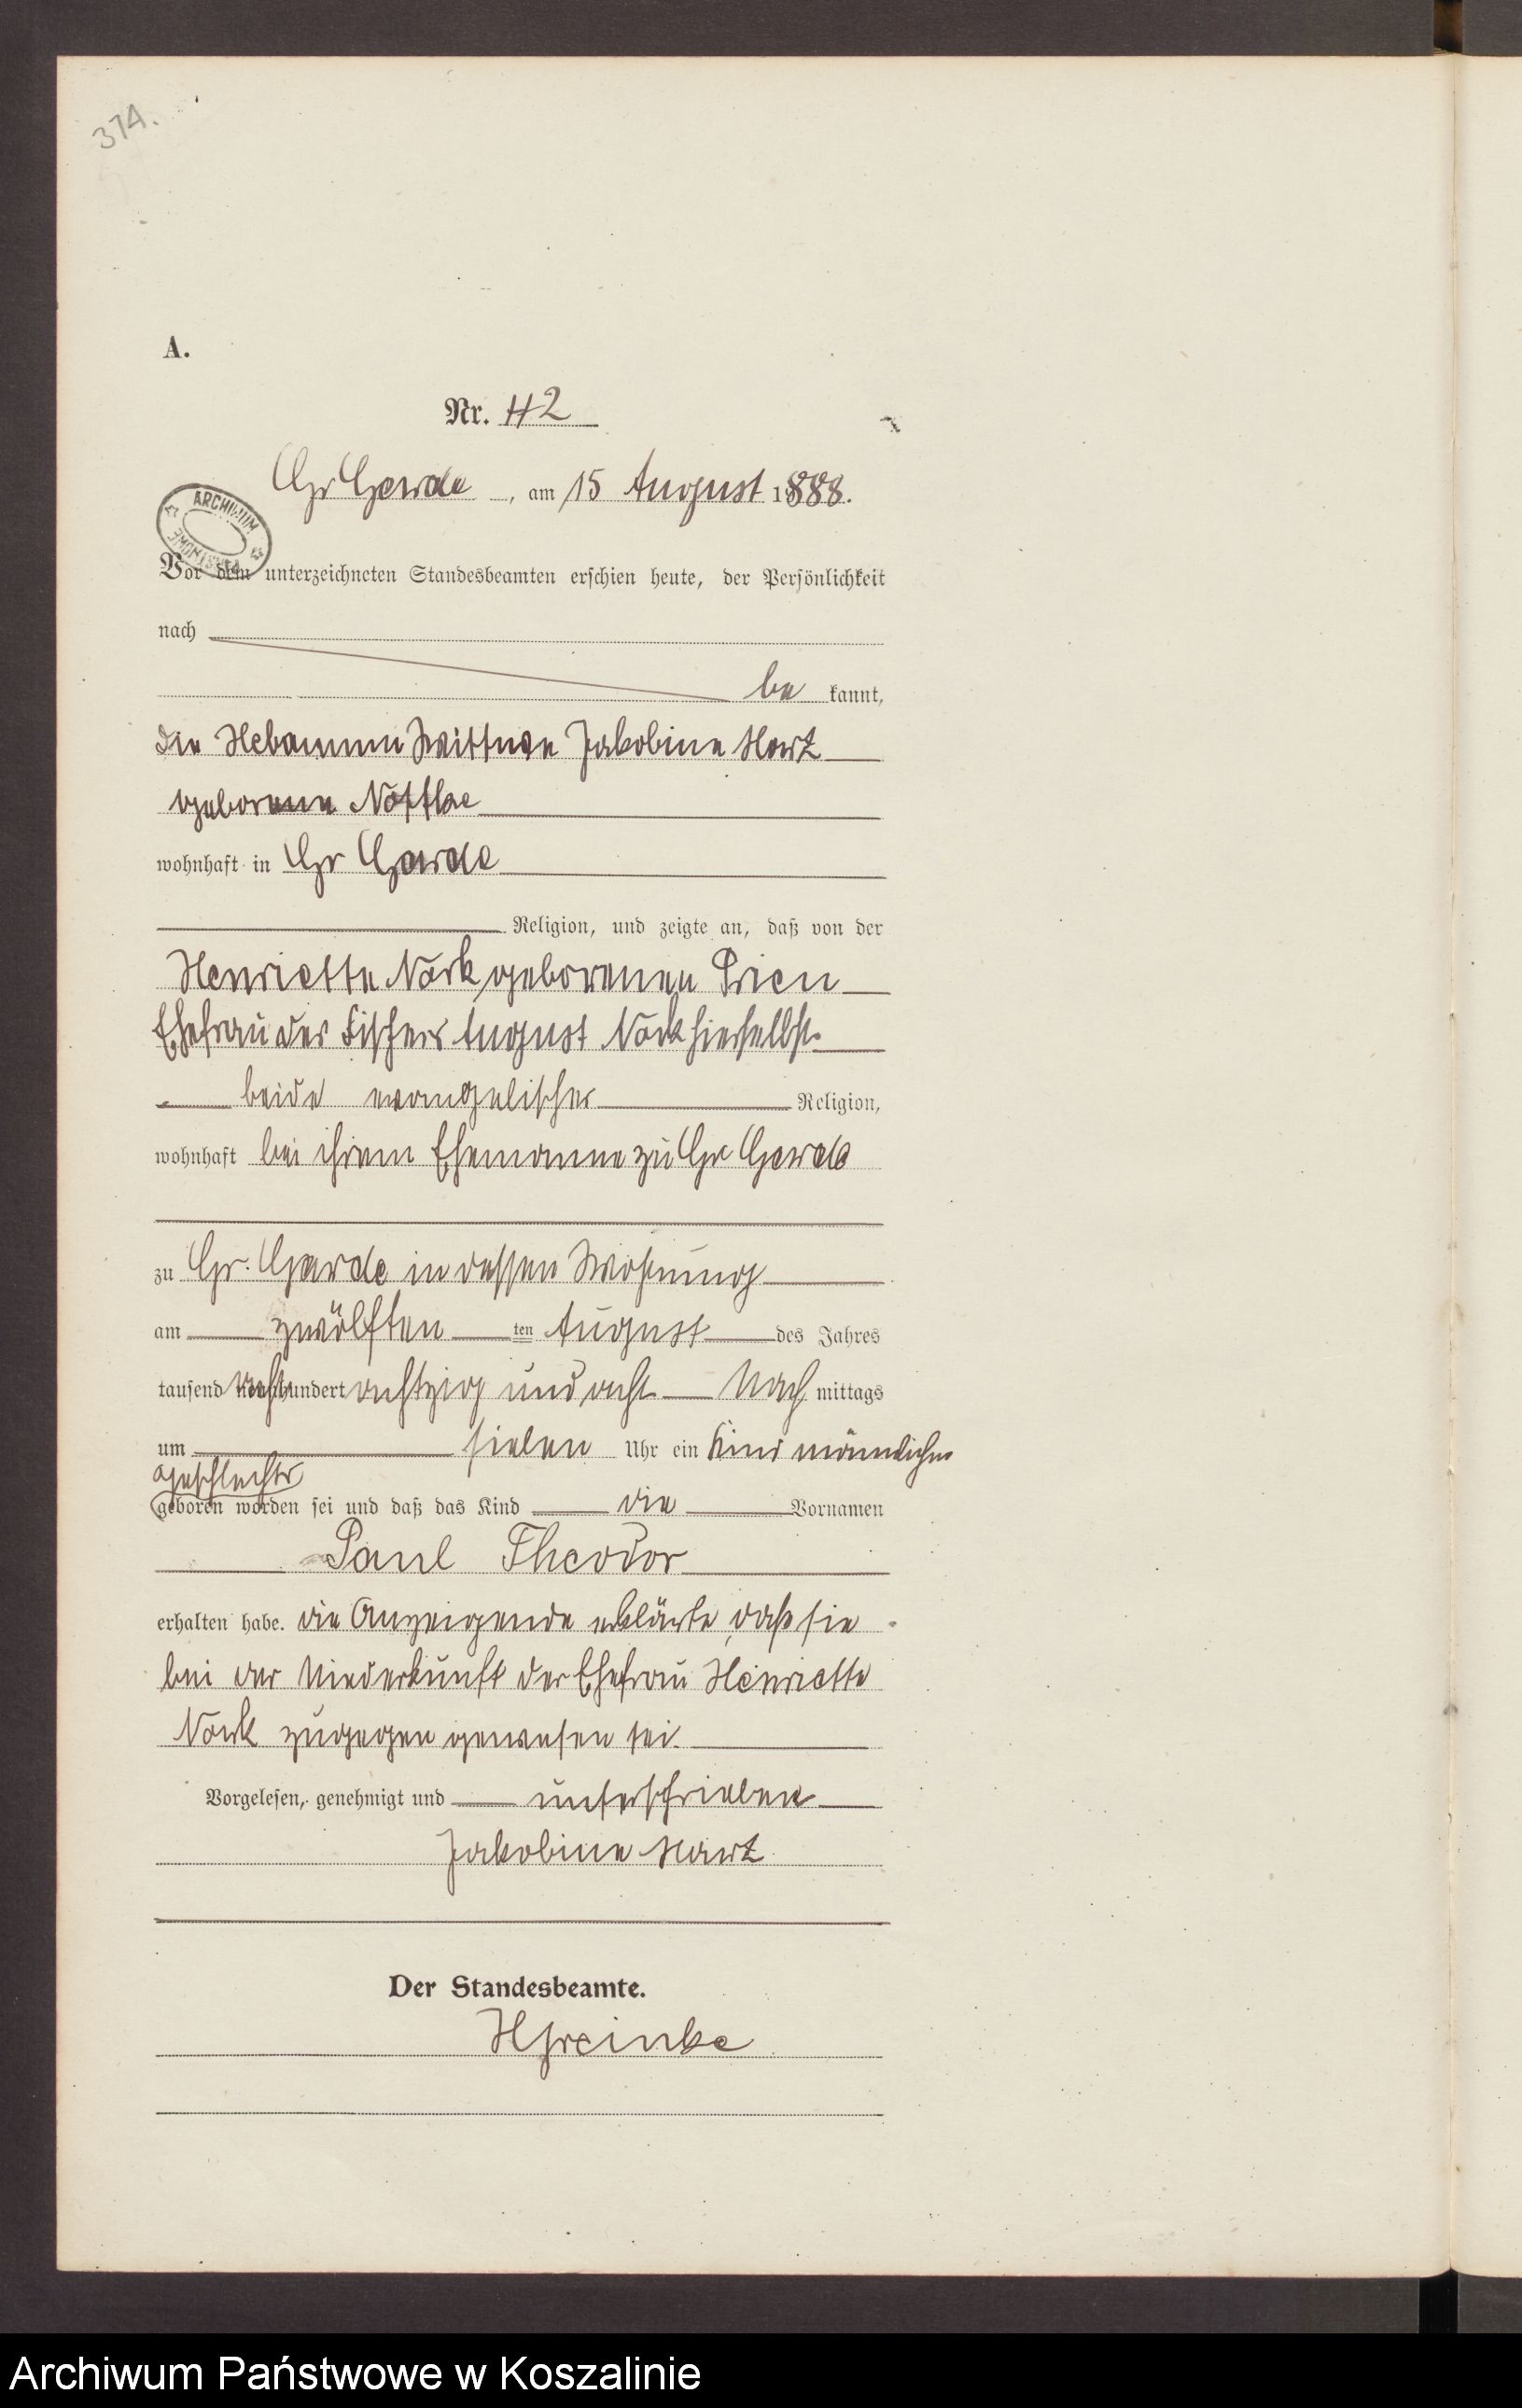 374.
A.
Nr. 42
Gr Garde, am 15 August 1888.
ARCHIWUM
Vor dem unterzeichneten Standesbeamten erschien heute, der Persönlichkeit
nach
be kannt,
die Hebamme Wittwe Jakobine Hartz
geborene Nöttke
wohnhaft in Gr Garde
Religion, und zeigte an, daß von der
Henriette Nock geborenen Prien
Ehefrau des Fischers August Nock hierselbst
beide evangelischer Religion,
wohnhaft bei ihrem Ehemanne zu Gr Garde
zu Gr. Garde in dessen Wohnung
am zwölften ten August des Jahres
tausend acht hundert achtzig und acht Nach mittags
um sieben Uhr ein Kind männlichen
Geschlechts
geboren worden sei und daß das Kind die Vornamen
Paul Theodor
erhalten habe. die Anzeigende erklärte, daß sie
bei der Niederkunft der Ehefrau Henriette
Nock zugegen gewesen sei.
Vorgelesen, genehmigt und unterschrieben
Jakobine Hartz
Der Standesbeamte.
Archiwum Państwowe w Koszalinie